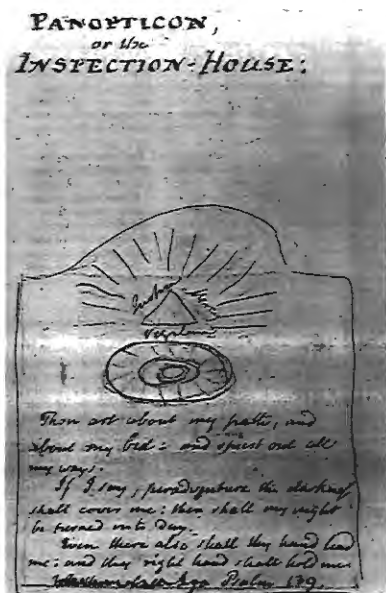 PANOPTICON,
or the
INSPECTION-HOUSE:
Thou art about my path, and
about my bed: and spiest out all
my ways.
If I say, peradventure the darkness
shall cover me: then shall my night
be turned into day.
Even there also shall thy hand lead
me: and thy right hand shall hold me.
Psalm 139.